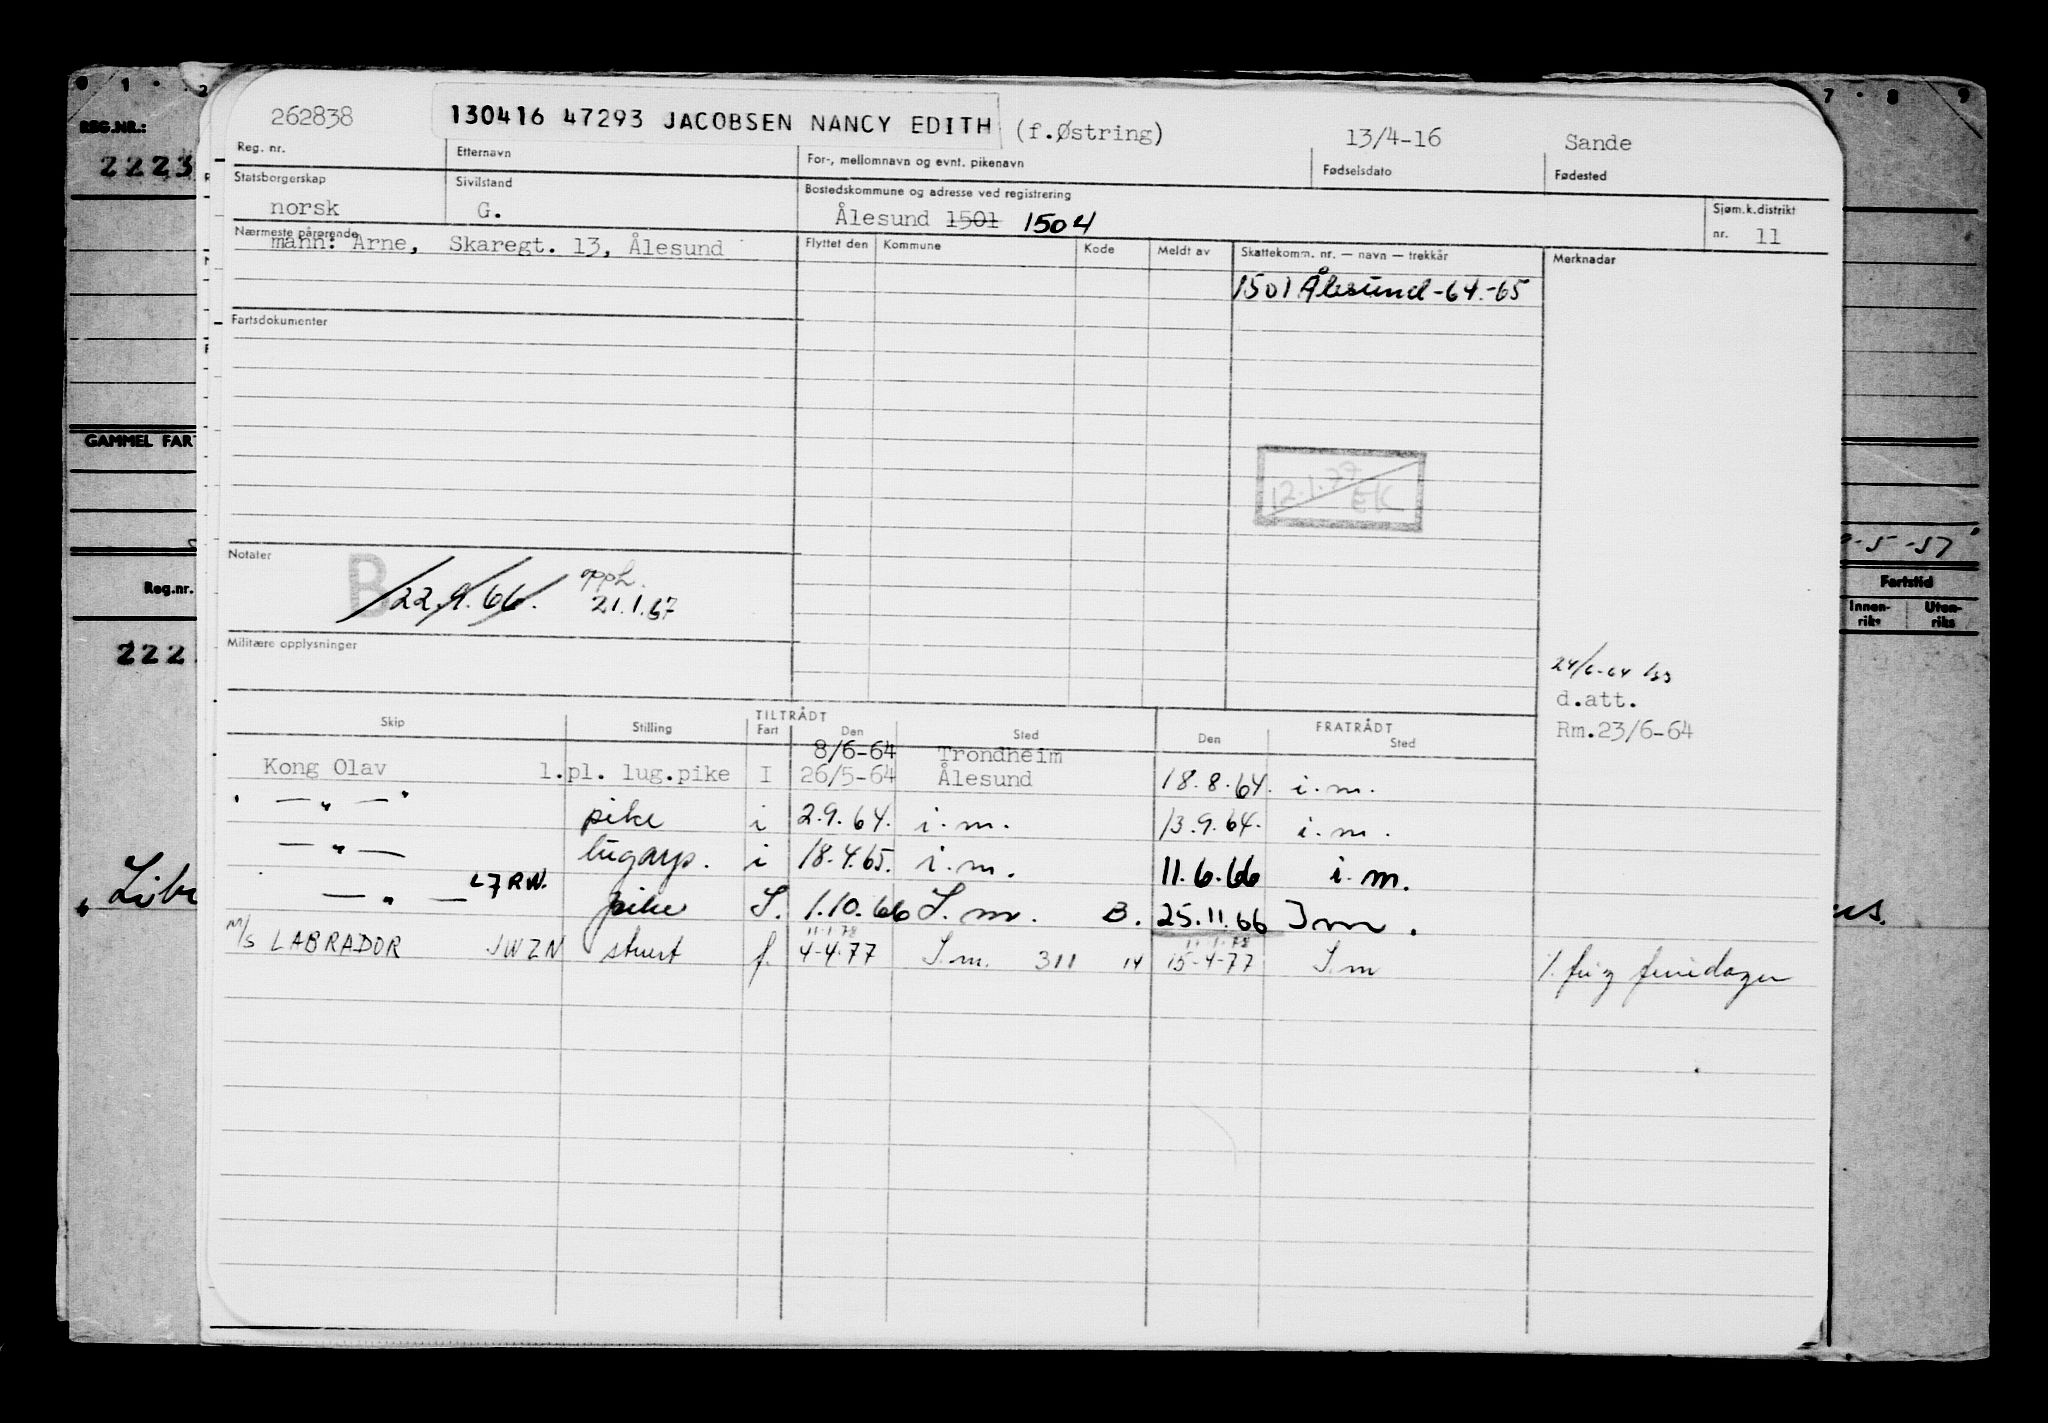 0 1 2 7 8 9
REG.NR.:
2223
262838 130416 47293 JACOBSEN NANCY EDITH (f.Østring) 13/4-16 Sande
Reg. nr. Etternavn For-, mellomnavn og evnt. pikenavn Fødselsdato Fødested
Statsborgerskap Sivilstand Bostedskommune og adresse ved registrering Sjøm.k.distrikt
norsk G. Ålesund 1501 1504 nr. 11
Nærmeste pårørende Flyttet den Kommune Kode Meldt av Skattekomm. nr. — navn — trekkår Merknader
mann: Arne, Skaregt. 13, Ålesund
1501 Ålesund-64.-65
Fartsdokumenter
GAMMEL FAR
12.1.79 EK
-5-57
Notater
B 22.9.66. opph.
21.1.67
Reg.nr. Fartstid
Innen-riks Uten-riks
Militære opplysninger
222
24/6-64
d.att.
Rm.23/6-64
Skip Stilling TILTRÅDT FRATRÅDT
Fart Den Sted Den Sted
8/6-64 Trondheim
Kong Olav 1.pl. lug.pike I 26/5-64 Ålesund 18.8.64. i.m.
— " — pike i 2.9.64. i.m. 13.9.64. i.m.
— " — lugarp. i 18.4.65. i.m. 11.6.66 i.m.
— " — L7RW. pike I. 1.10.66 I.m. B. 25.11.66 Im.
11.1.78 11.1.78
M/S LABRADOR JWZN stuert f. 4-4-77 I.m. 311 14 15-4-77 I.m